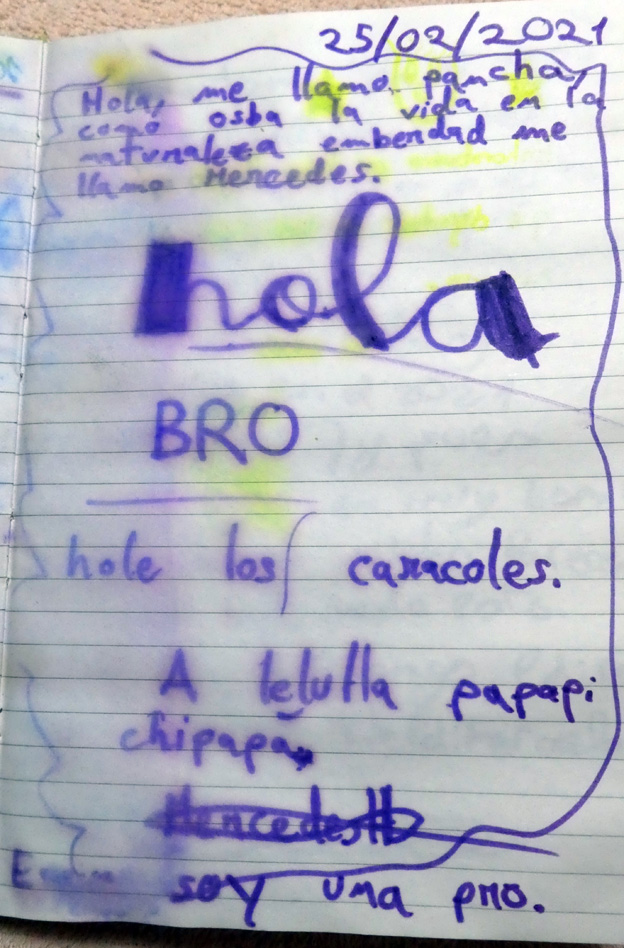 25/02/2021
Hola, me llamo pancha,
como osba la vida en la
naturaleza embendad me
llamo Mencedes.
hola
BRO
hole los caracoles.
A lelulla papapi
chipapa
soy una pro.